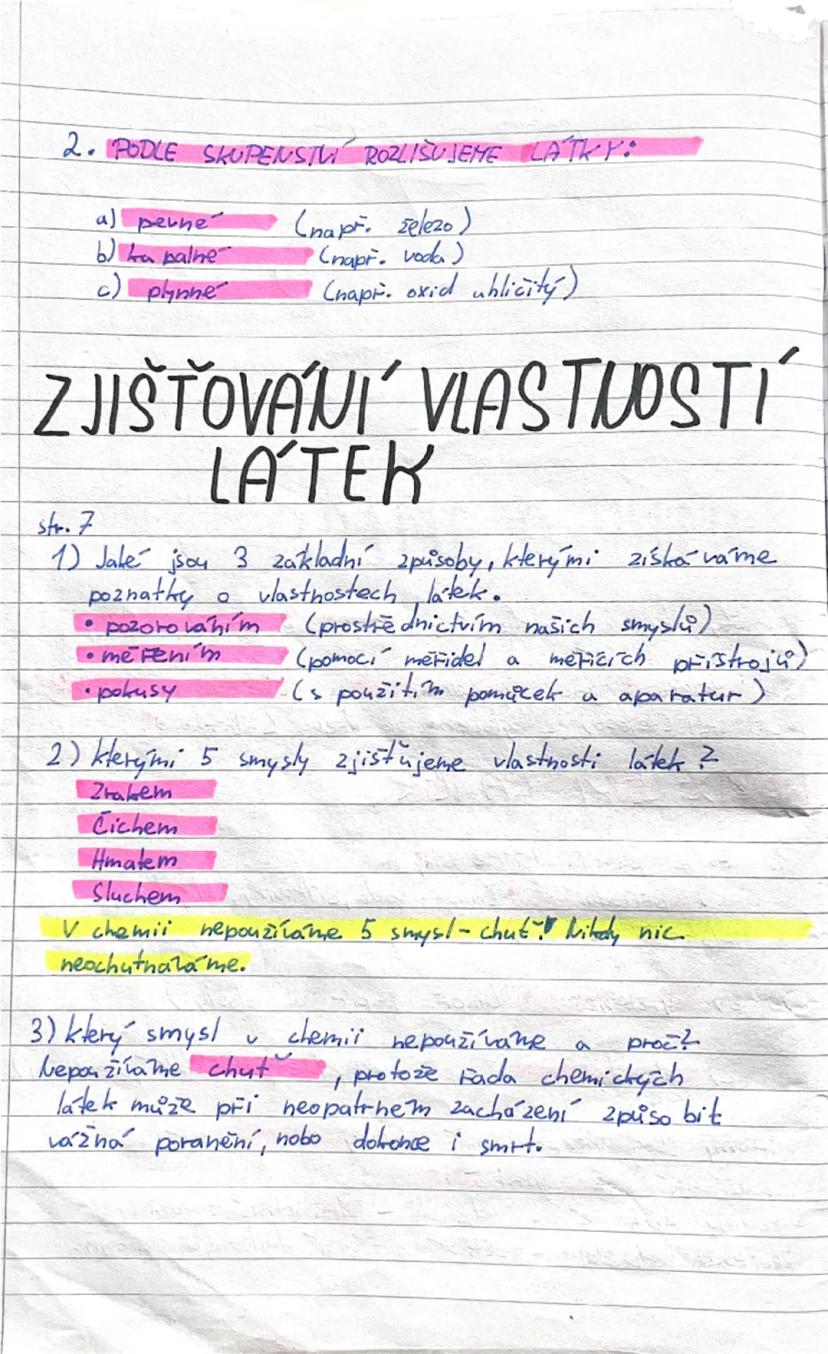 2. PODLE SKUPENSTVÍ ROZLIŠUJEME LÁTKY:
a) pevné (např. železo)
b) kapalné (např. voda)
c) plynné (např. oxid uhličitý)
ZJIŠŤOVÁNÍ VLASTNOSTÍ
LÁTEK
str. 7
1) Jaké jsou 3 základní způsoby, kterými získáváme
poznatky o vlastnostech látek.
• pozorováním (prostřednictvím našich smyslů)
• měřením (pomocí měřidel a měřících přístrojů)
• pokusy (s použitím pomůcek a aparatur)
2) kterými 5 smysly zjišťujeme vlastnosti látek?
Zrakem
Čichem
Hmatem
Sluchem
V chemii nepoužíváme 5 smysl - chuť! Nikdy nic
neochutnáváme.
3) který smysl v chemii nepoužíváme a proč?
Nepoužíváme chuť, protože řada chemických
látek může při neopatrném zacházení způsobit
vážná poranění, nobo dokonce i smrt.